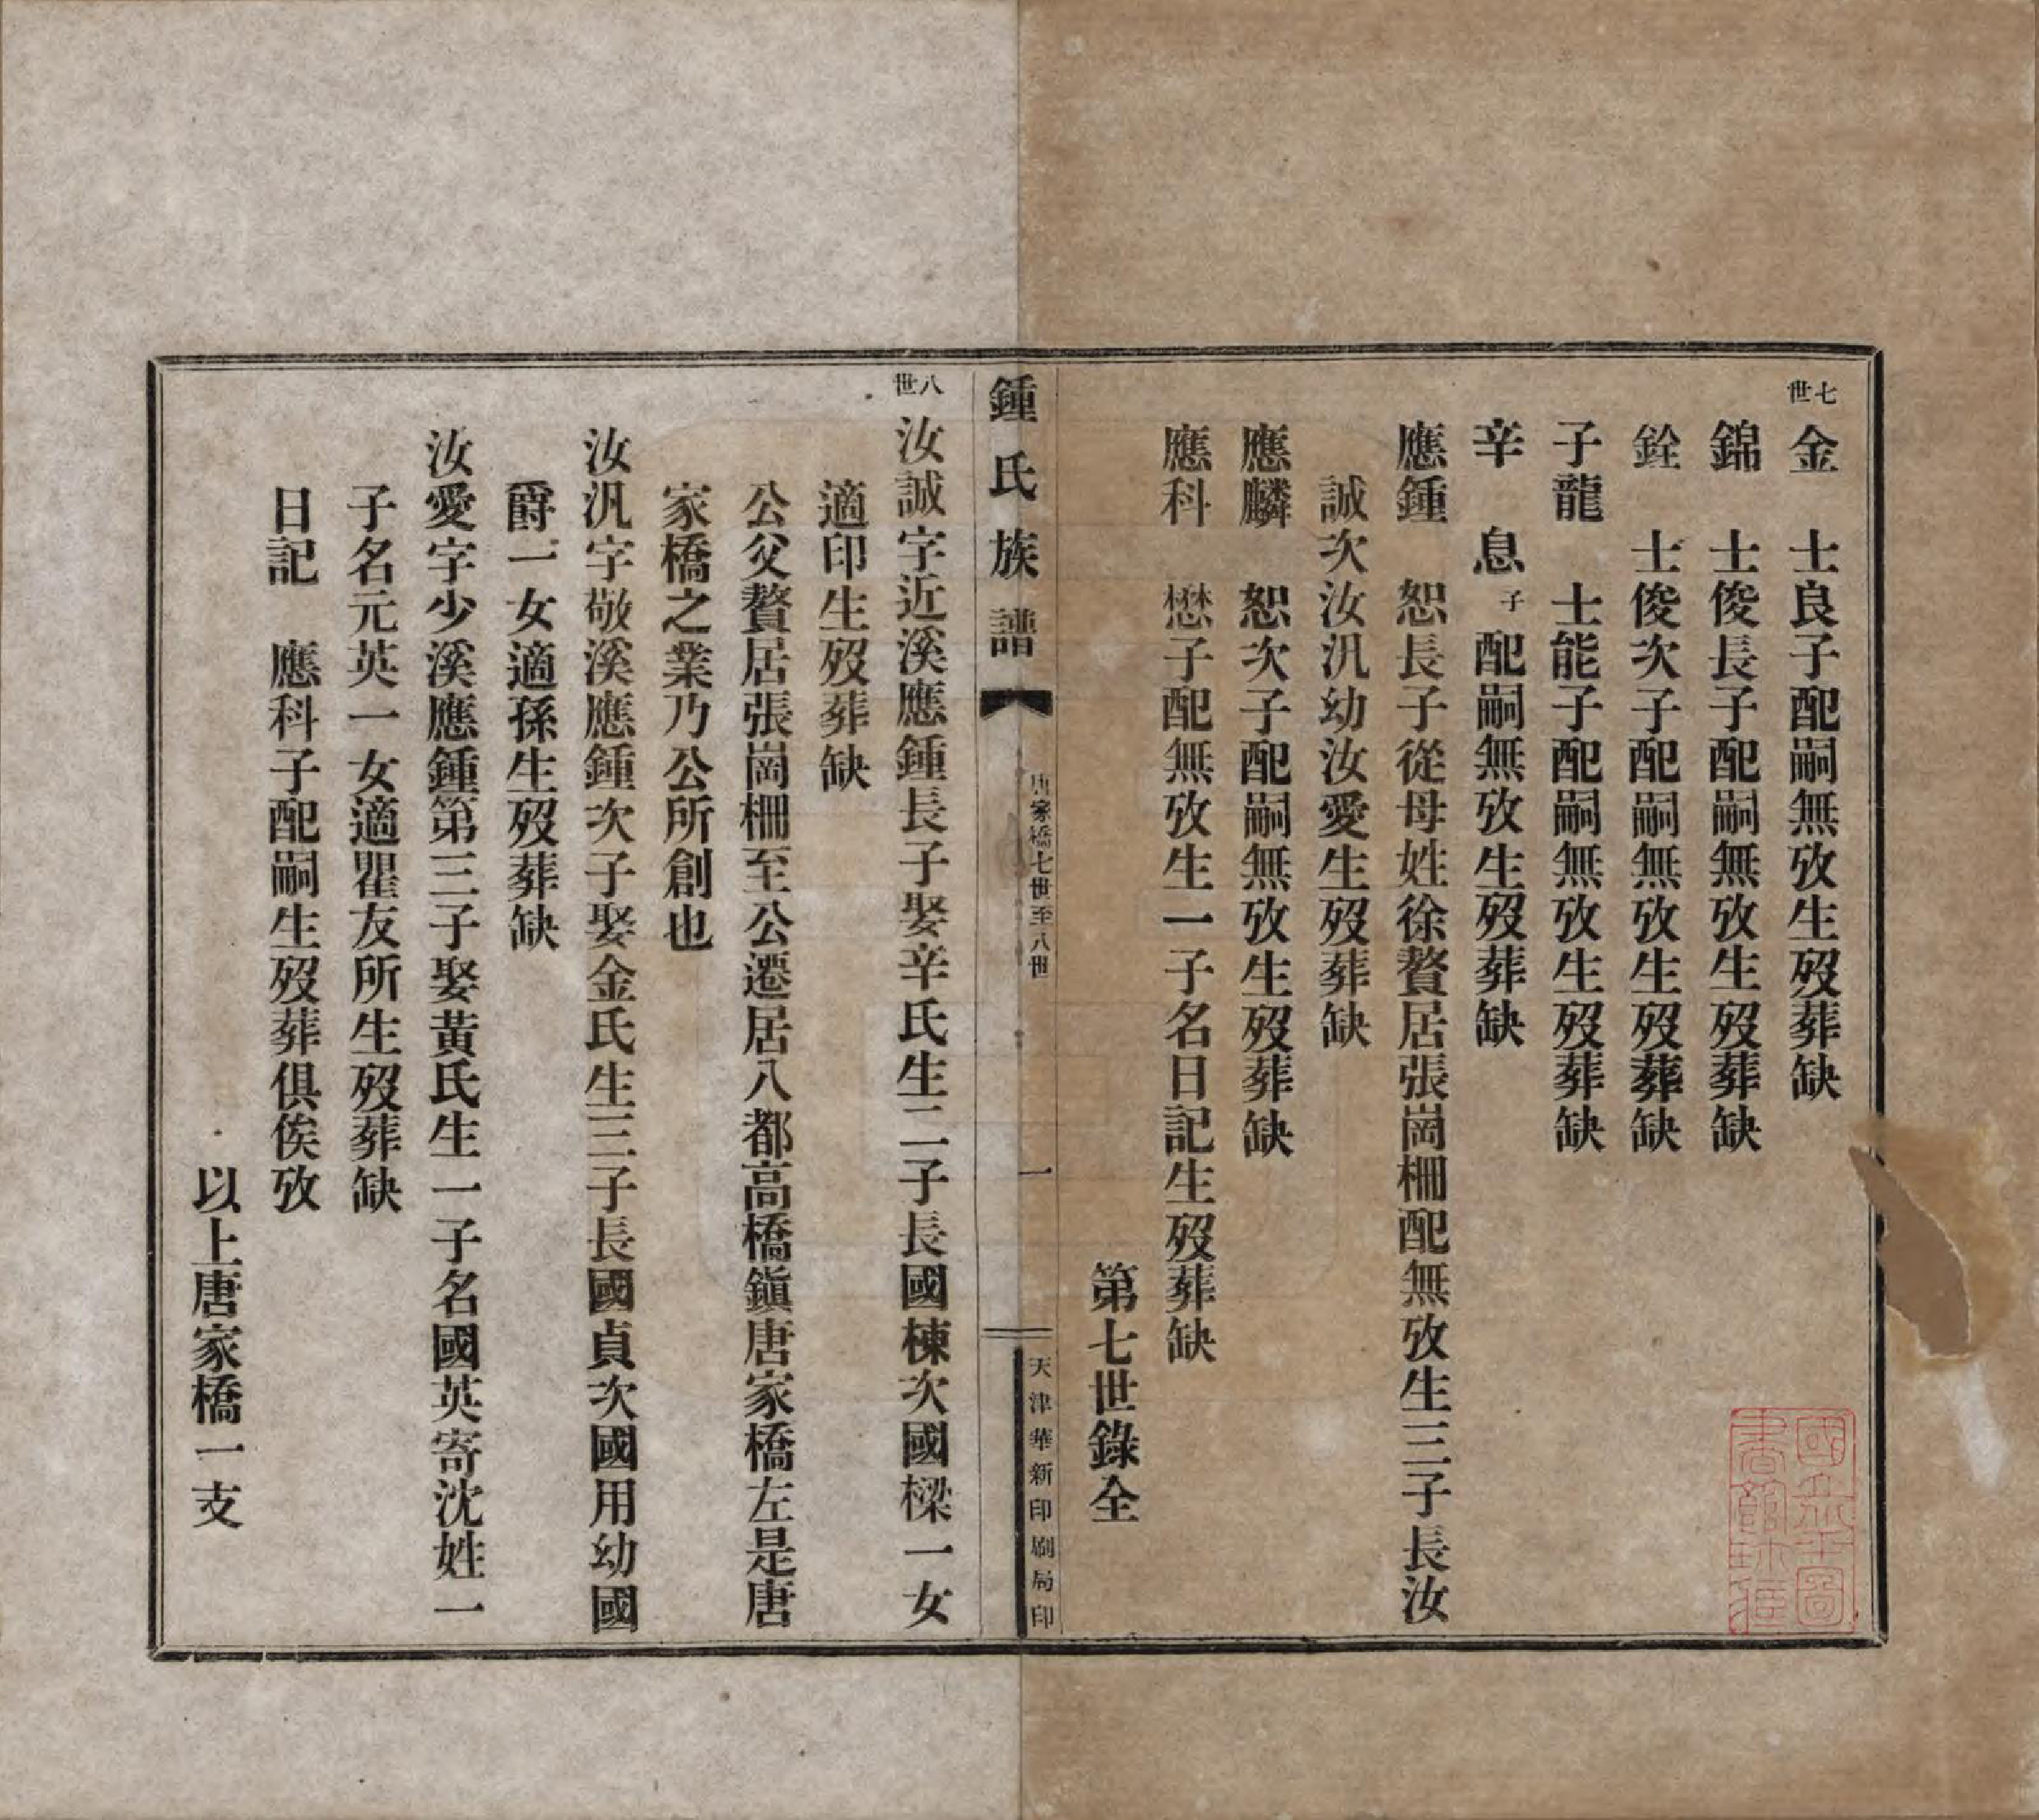 七世
金　士良子配嗣無攷生歿葬缺
錦　士俊長子配嗣無攷生歿葬缺
銓　士俊次子配嗣無攷生歿葬缺
子龍　士能子配嗣無攷生歿葬缺
辛　息子配嗣無攷生歿葬缺
應鍾　恕長子從母姓徐贅居張崗柵配無攷生三子長汝
誠次汝汎幼汝愛生歿葬缺
應麟　恕次子配嗣無攷生歿葬缺
應科　懋子配無攷生一子名日記生歿葬缺
第七世錄全
鍾氏族譜
唐家橋七世至八世
一
天津華新印刷局印
八世
汝誠字近溪應鍾長子娶辛氏生二子長國棟次國樑一女
適印生歿葬缺
公父贅居張崗柵至公遷居八都高橋鎭唐家橋左是唐
家橋之業乃公所創也
汝汎字敬溪應鍾次子娶金氏生三子長國貞次國用幼國
爵一女適孫生歿葬缺
汝愛字少溪應鍾第三子娶黃氏生一子名國英寄沈姓一
子名元英一女適瞿友所生歿葬缺
日記　應科子配嗣生歿葬俱俟攷
以上唐家橋一支